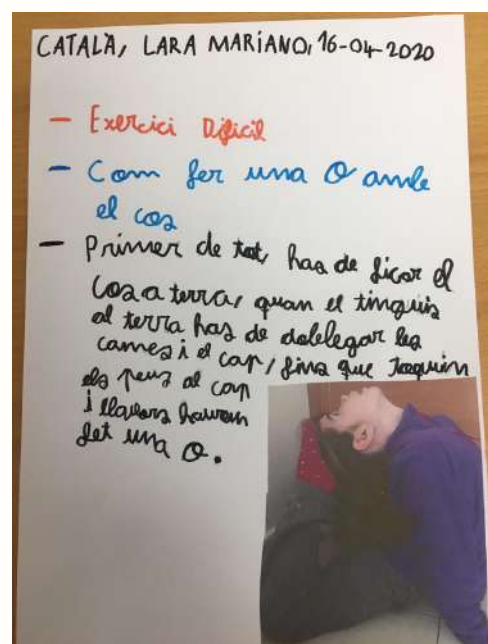 CATALÀ, LARA MARIANO, 16-04-2020
- Exercici Difícil
- Com fer una O amb
el cos
- Primer de tot, has de ficar el
cos a terra, quan el tinguis
al terra has de doblegar les
cames i el cap, fins que toquin
els peus al cap
i llavors hauràs
fet una O.